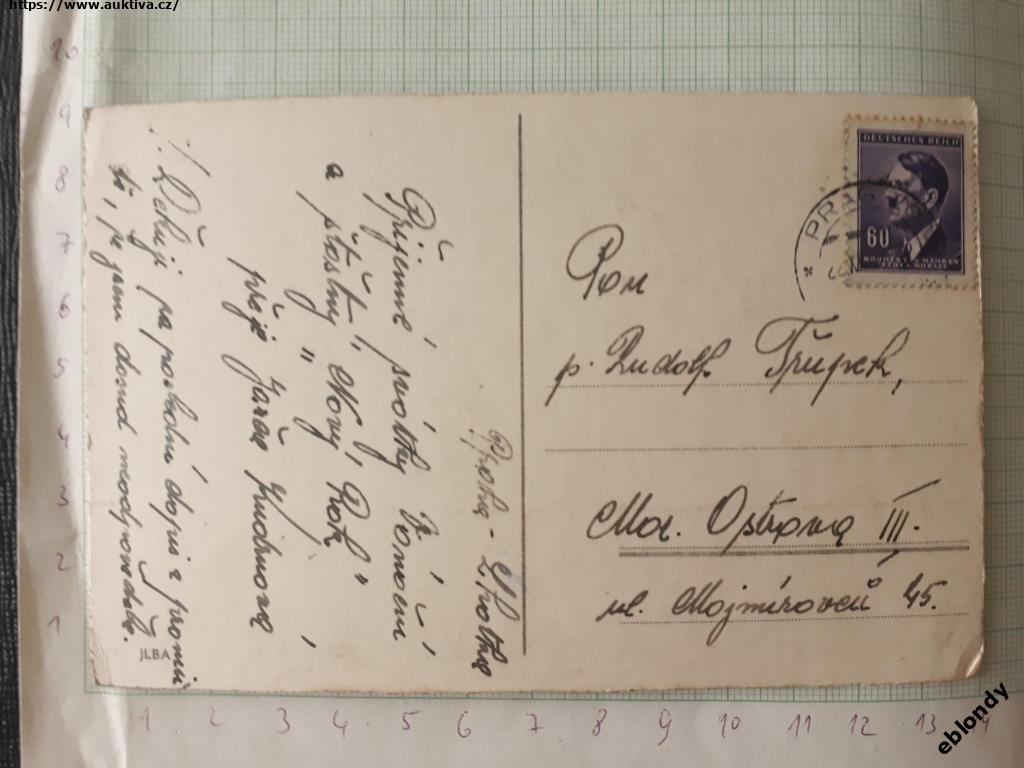 https://www.auktiva.cz/
Příjemné svátky Vánoční
a šťastný
"Nový Rok"
přeje Jarka
! Děkuji za poslední dopis a promiň
mi, že jsem dosud neodpověděla.
JLBA
DEUTSCHES REICH
60
BÖHMEN U. MÄHREN
ČECHY A MORAVA
PRA
Pan
p. Rudolf Třúpek,
Mor. Ostrava III.
ul. Mojmírovců 45.
10
9
8
7
6
5
4
3
2
1
1 2 3 4 5 6 7 8 9 10 11 12 13 14
eblondy